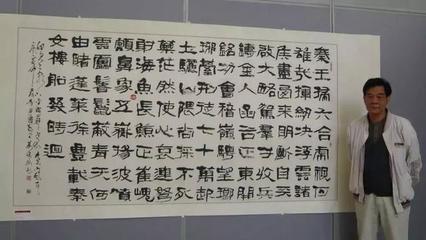 秦王掃六合虎視何
雄哉揮劍決浮雲諸
侯盡西來明斷自天
啟大略駕羣才收兵
鑄金人函谷正東開
銘功會稽嶺騁望琅
琊臺刑徒七十萬起
土驪山隈尚採不死
藥茫然使心哀連弩
射海魚長鯨正崔嵬
額鼻象五嶽揚波噴
雲雷鬐鬣蔽青天何
由睹蓬萊徐巿載秦
女樓船幾時迴